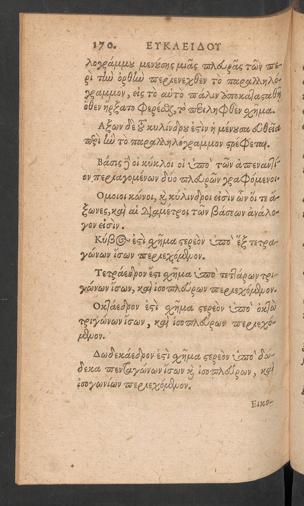 170. ΕΥΚΛΕΙΔΟΥ
λογράμμου μενούσης μιᾶς πλευρᾶς τῶν πε-
ρὶ τὴν ὀρθὴν περιενεχθὲν τὸ παραλληλό-
γραμμον, εἰς τὸ αὐτὸ πάλιν ἀποκατασταθῇ
ὅθεν ἤρξατο φέρεσθαι, τὸ περιληφθὲν σχῆμα.
Αξων δὲ τοῦ κυλίνδρου ἐστὶν ἡ μένουσα εὐθεῖα
περὶ ἣν τὸ παραλληλόγραμμον στρέφεται.
Βάσεις δὲ οἱ κύκλοι οἱ ὑπὸ τῶν ἀπεναντί-
ον περιαγομένων δύο πλευρῶν γραφόμενοι.
Ομοιοι κῶνοι, καὶ κύλινδροί εἰσιν ὧν οἵ τε ἄ-
ξωνες, καὶ αἱ διάμετροι τῶν βάσεων ἀνάλο-
γόν εἰσιν.
Κύβος ἐστὶ σχῆμα στερεὸν ὑπὸ ἓξ τετρα-
γώνων ἴσων περιεχόμενον.
Τετράεδρον ἐστὶ σχῆμα ὑπὸ τεττάρων τρι-
γώνων ἴσων, καὶ ἰσοπλεύρων περιεχόμενον.
Οκτάεδρον ἐστὶ σχῆμα στερεὸν ὑπὸ ὀκτὼ
τριγώνων ἴσων, καὶ ἰσοπλεύρων περιεχό-
μενον.
Δωδεκάεδρον ἐστὶ σχῆμα στερεὸν ὑπὸ δώ-
δεκα πενταγώνων ἴσων καὶ ἰσοπλεύρων, καὶ
ἰσογωνίων περιεχόμενον.
Εικο-